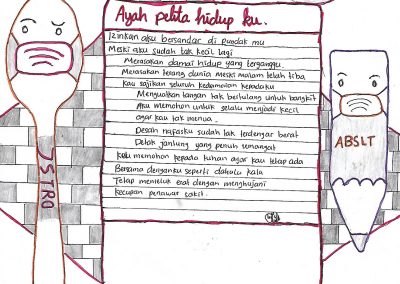 Ayah pelita hidup ku.
Izinkan aku bersandar di pundak mu
Meski aku sudah tak kecil lagi
Merasakan damai hidup yang terganggu.
Merasakan terang dunia meski malam telah tiba
Kau sajikan seluruh kedamaian kepadaku
Menguatkan tangan tak bertulang untuk bangkit
Aku memohon untuk selalu menjadi kecil
agar kau tak menua.
Desah nafasku sudah tak terdengar berat
Detak jantung yang penuh semangat
memohon kepada tuhan agar kau tetap ada
Bersama denganku seperti dahulu kala
Tetap memeluk erat dengan menghujani
kecupan penawar sakit.
JSTRO
ABSLT